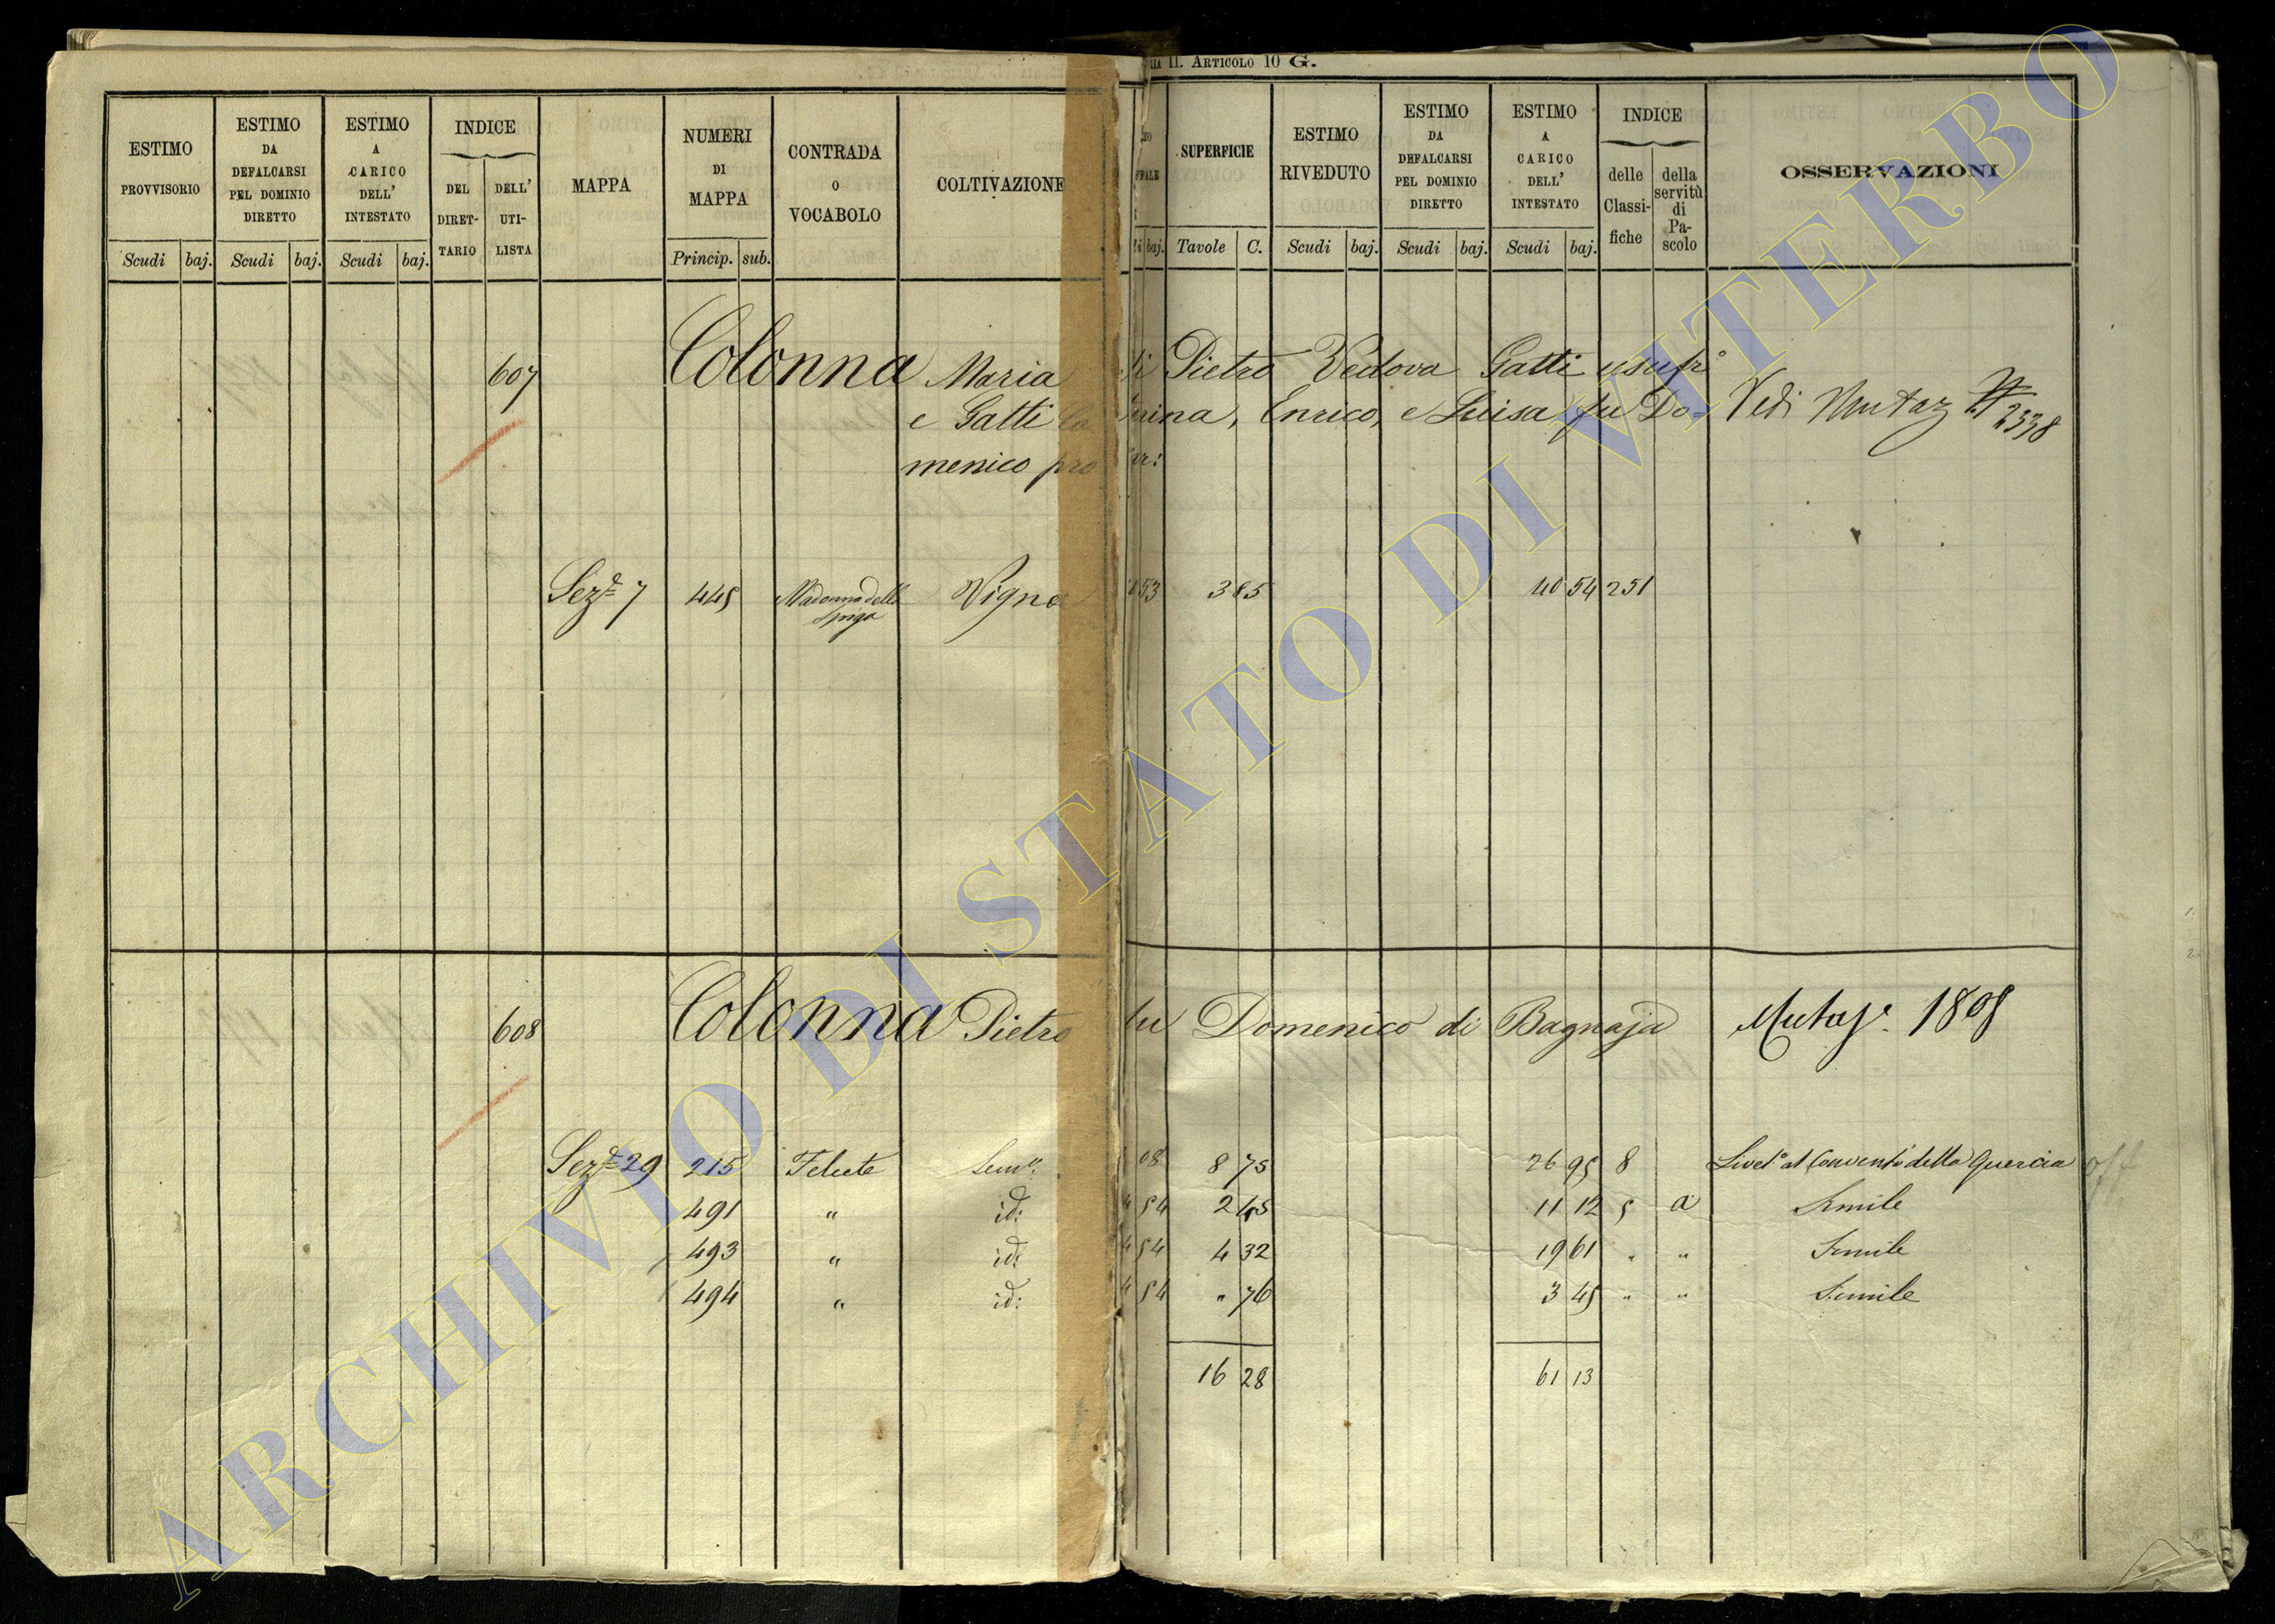 II. ARTICOLO 10 G.
ESTIMO PROVVISORIO
ESTIMO DA DEFALCARSI PEL DOMINIO DIRETTO
ESTIMO A CARICO DELL' INTESTATO
INDICE
DEL DIRET-TARIO
DELL' UTI-LISTA
MAPPA
NUMERI DI MAPPA
CONTRADA O VOCABOLO
COLTIVAZIONE
SUPERFICIE
ESTIMO RIVEDUTO
ESTIMO DA DEFALCARSI PEL DOMINIO DIRETTO
ESTIMO A CARICO DELL' INTESTATO
INDICE
delle Classi-fiche
della servitù di Pa-scolo
OSSERVAZIONI
Scudi baj. Scudi baj. Scudi baj. Princip. sub. baj. Tavole C. Scudi baj. Scudi baj. Scudi baj.
607 Colonna Maria di Pietro Vedova Gatti usufr.
e Gatti rina, Enrico, e Luisa fu Do= Vedi Mutaz N 2338
menico pro
Sez.e 7 445 Madonna della Spiga Vigna 53 3 85 40 54 251
608 Colonna Pietro fu Domenico di Bagnaja Mutaz.e 1808
Sez.e 29 215 Felcete Sem.o 08 8 75 26 95 8 Livel.o al Convento della Quercia
491 " id: 54 2 45 11 12 5 a Simile
493 " id: 54 4 32 19 61 " " Simile
494 " id: 54 " 76 3 45 " " Simile
16 28 61 13
ARCHIVIO DI STATO DI VITERBO